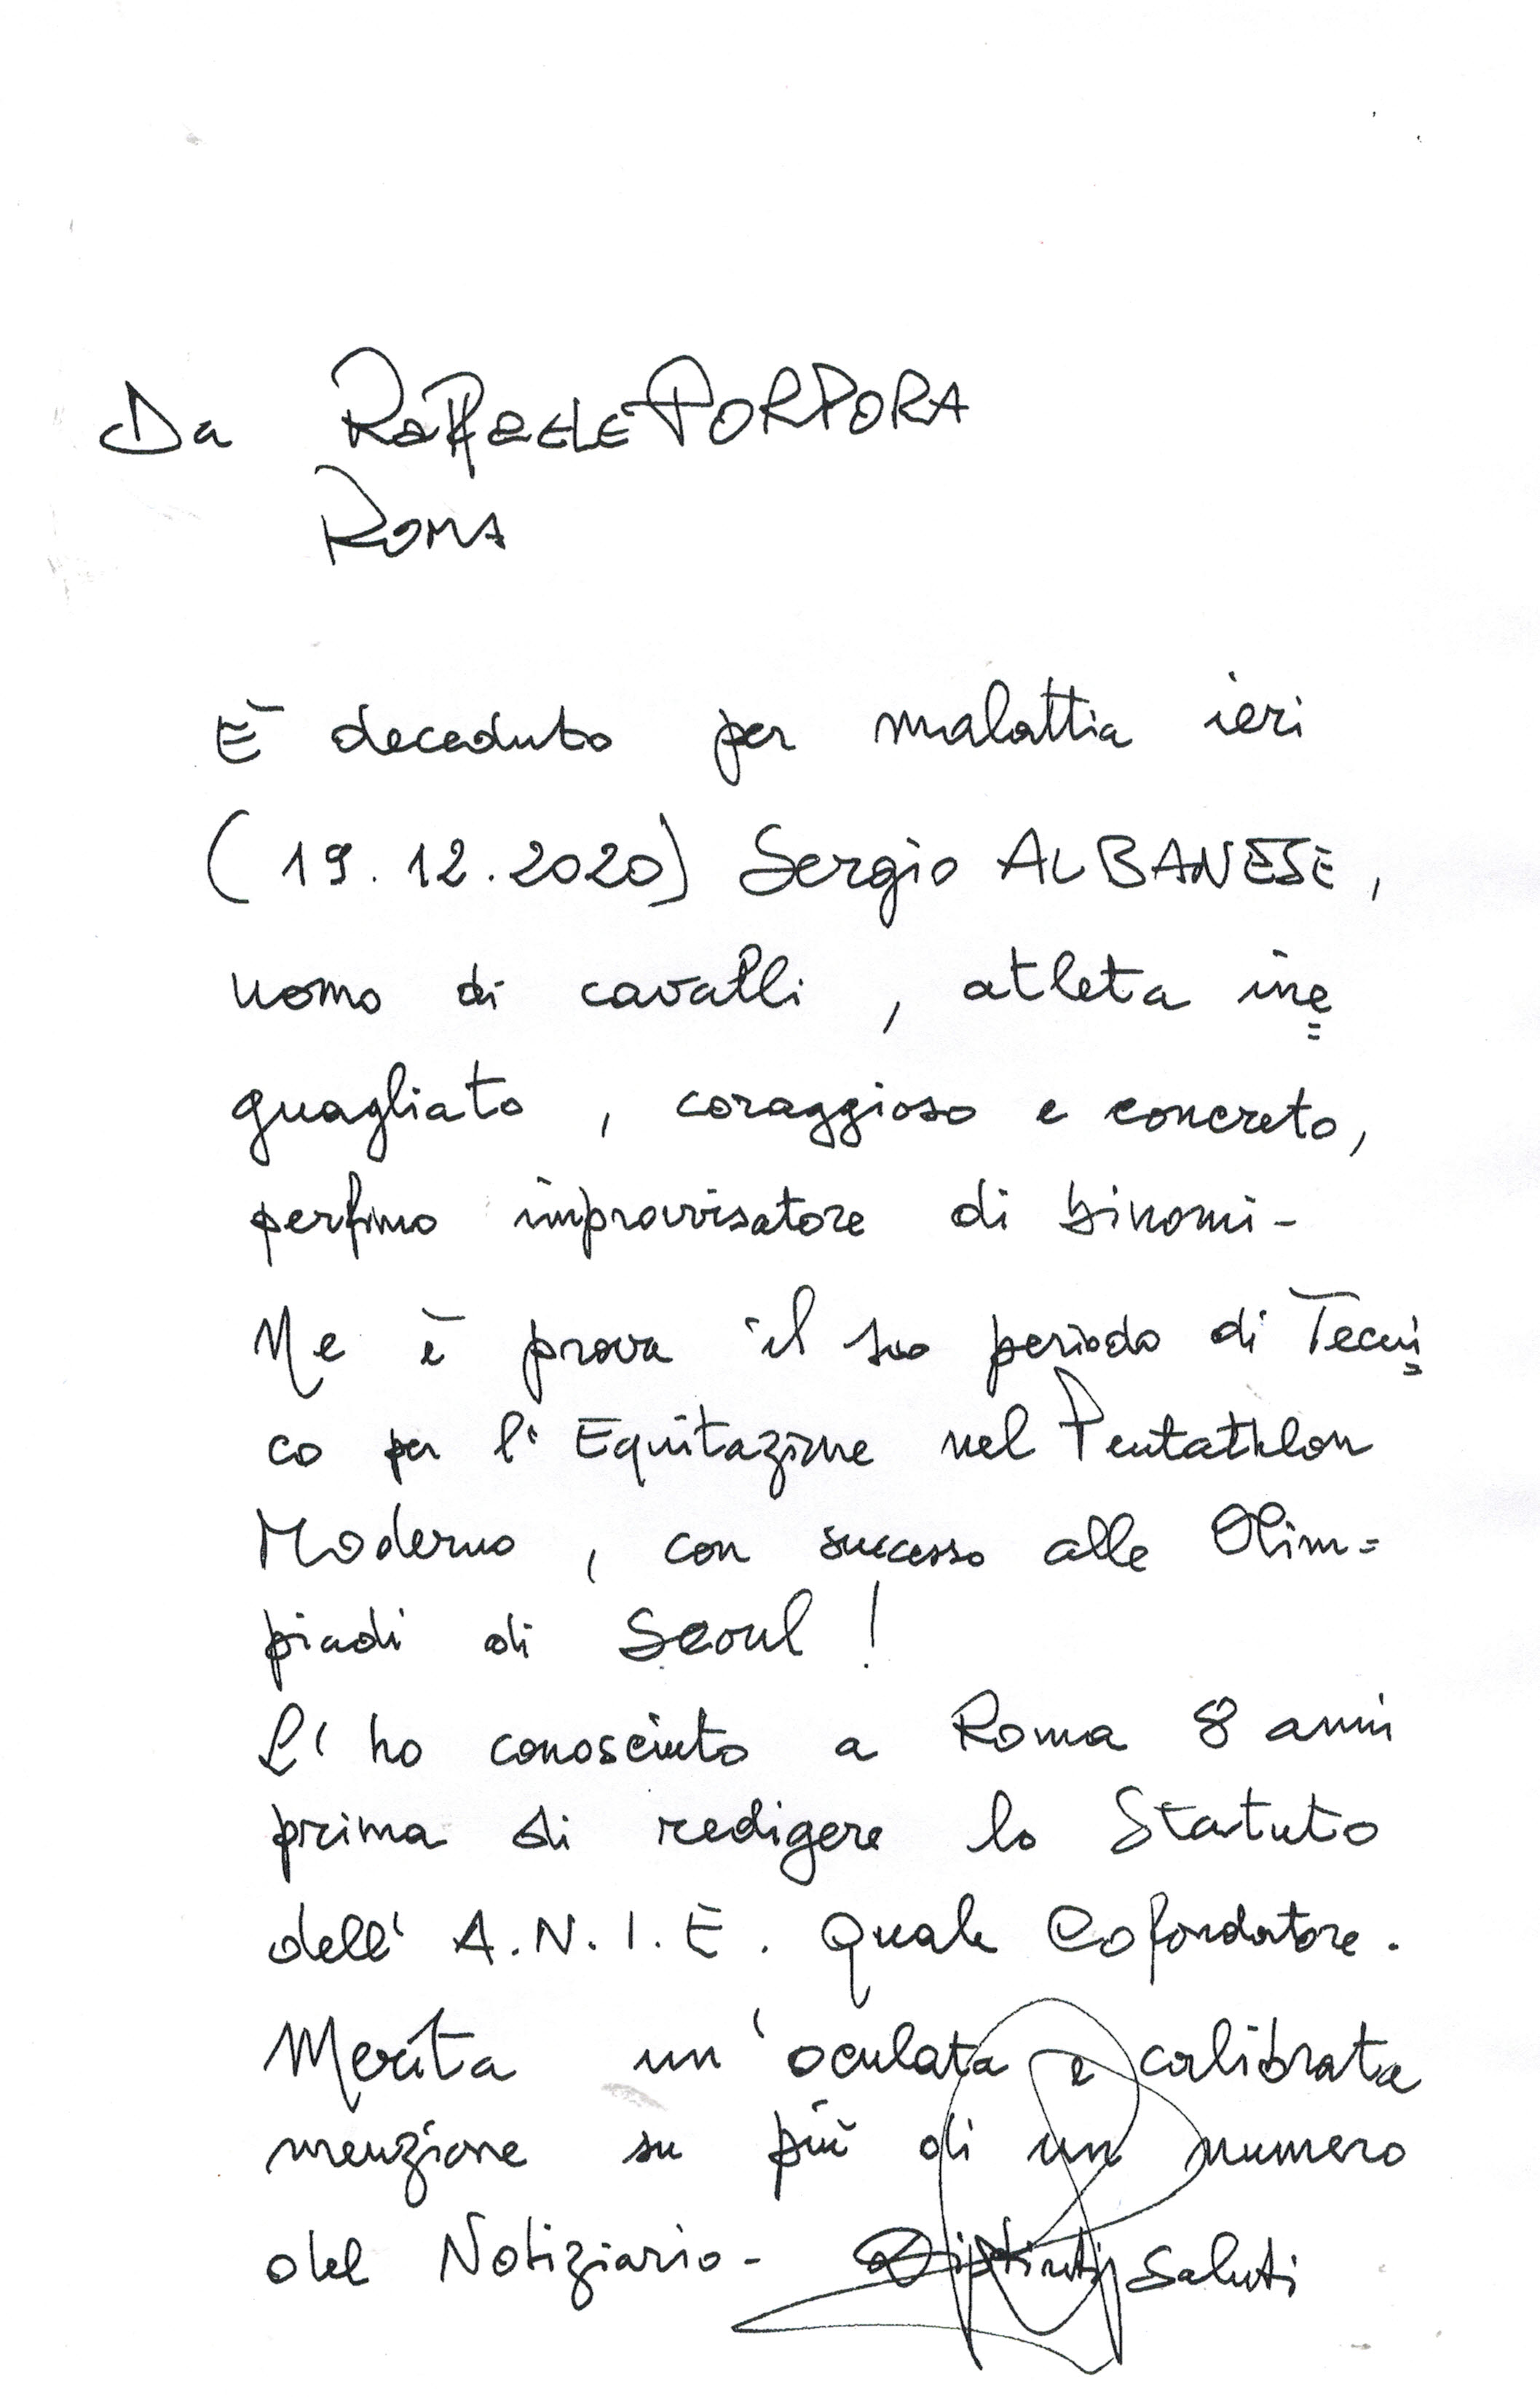 Da Raffaele PORPORA
ROMA
È deceduto per malattia ieri
(19.12.2020) Sergio ALBANESE,
uomo di cavalli, atleta ine=
guagliato, coraggioso e concreto,
perfino improvvisatore di binomi-
Ne è prova il suo periodo di Tecni=
co per l'Equitazione nel Pentathlon
Moderno, con successo alle Olim=
piadi di Seoul!
L'ho conosciuto a Roma 8 anni
prima di redigere lo Statuto
dell'A.N.I.E. Quale Cofondatore.
Merita un'oculata e calibrata
menzione su più di un numero
del Notiziario- Distinti Saluti